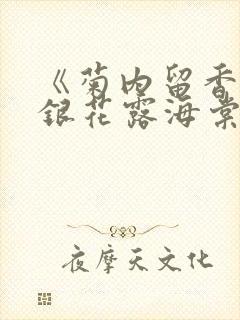 《菊内留香
銀花露海棠
夜摩天文化